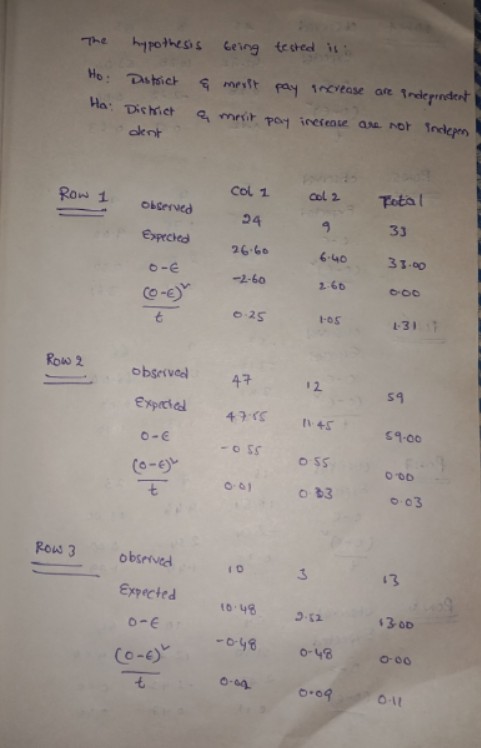 The hypothesis being tested is:
Ho: District & merit pay increase are independent
Ha: District & merit pay increase are not indepen
dent
Row 1 Col 1 Col 2 Total
Observed 24 9 33
Expected 26.60 6.40 33.00
O-E -2.60 2.60 0.00
(O-E)² / E 0.25 1.05 1.31
Row 2
Observed 47 12 59
Expected 47.55 11.45 59.00
O-E -0.55 0.55 0.00
(O-E)² / E 0.01 0.03 0.03
Row 3
Observed 10 3 13
Expected 10.48 2.52 13.00
O-E -0.48 0.48 0.00
(O-E)² / E 0.02 0.09 0.11